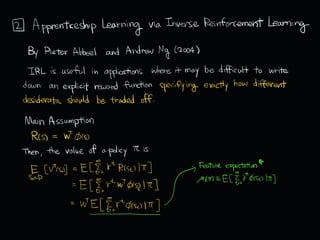 2 Apprenticeship Learning via Inverse Reinforcement Learning
By Pieter Abbeel and Andrew Ng (2004)
IRL is useful in applications where it may be difficult to write
down an explicit reward function specifying exactly how different
desiderata should be traded off.
Main Assumption
R(s) = wᵀφ(s)
Then, the value of a policy π is
E_{s₀~D}[V^π(s₀)] = E[Σ_{t=0}^∞ γᵗ R(sₜ)|π]
= E[Σ_{t=0}^∞ γᵗ wᵀφ(sₜ)|π]
= wᵀE[Σ_{t=0}^∞ γᵗ φ(sₜ)|π]
Feature expectation*
μ(π) = E[Σ_{t=0}^∞ γᵗ φ(sₜ)|π]